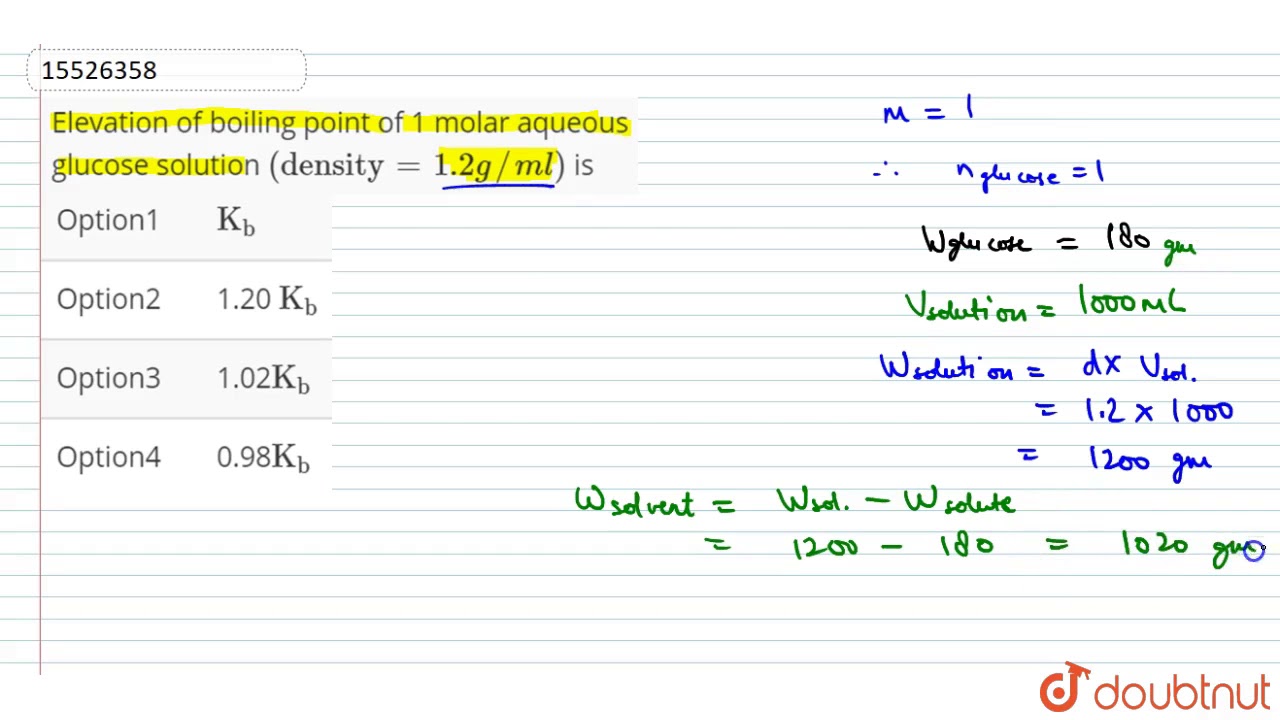 15526358
Elevation of boiling point of 1 molar aqueous
glucose solution (density = 1.2g/ml) is
Option1 K_b
Option2 1.20 K_b
Option3 1.02K_b
Option4 0.98K_b
M = 1
∴ n glucose = 1
Wglucose = 180 gm
Vsolution = 1000mL
Wsolution = d× Vsol.
= 1.2 × 1000
= 1200 gm
Wsolvent = Wsol. - Wsolute
= 1200 - 180 = 1020 gm
doubtnut